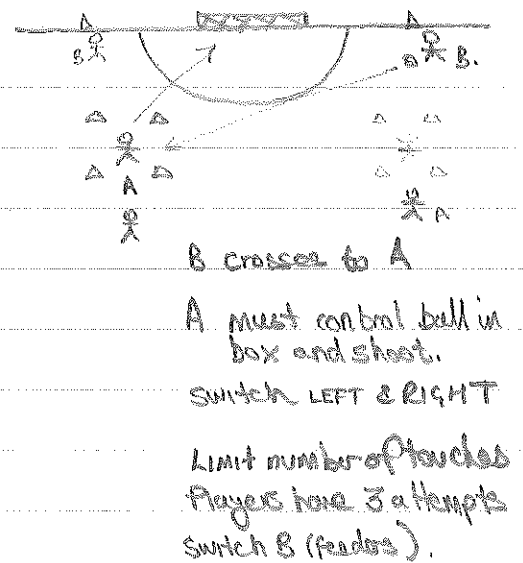 B
B.
A
A
B crosses to A
A must control ball in
box and shoot.
SWITCH LEFT & RIGHT
Limit number of touches
Players have 3 attempts
switch B (feeders).